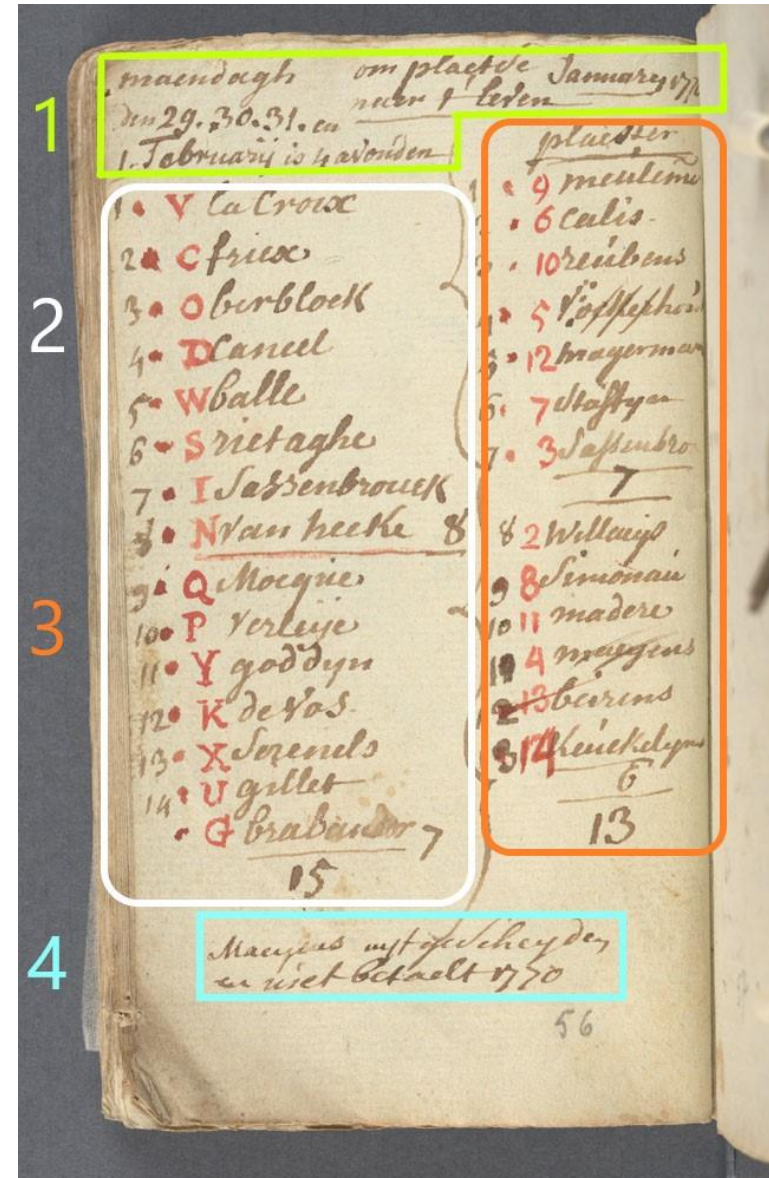 1
maendagh om plaetse January 1770
den 29. 30. 31. en naer t leven
1. Februarij is 4 avonden
2
1 V la Croix
2 C friex
3 O berblock
4 D Cancel
5 W balle
6 S rietaghe
7 I Sassenbrouck
8 N Van hecke 8
9 Q Mocque
10 P Verleije
11 Y goddyn
12 K de Vos
13 X Serenels
14 U gillet
G brabander 7
15
3
plaesser
1 9 meuleme
2 6 Calis
3 10 reubens
4 5
5 12 magerman
6 7 Stastyn
7 3 Sassenbro
7
8 2 Willaeys
9 8 Simonau
10 11 madere
11 4 maegens
12 13 beirens
13 14 Keuckelyn
6
13
4
Maegens uyt gescheyden
en niet betaelt 1770
56